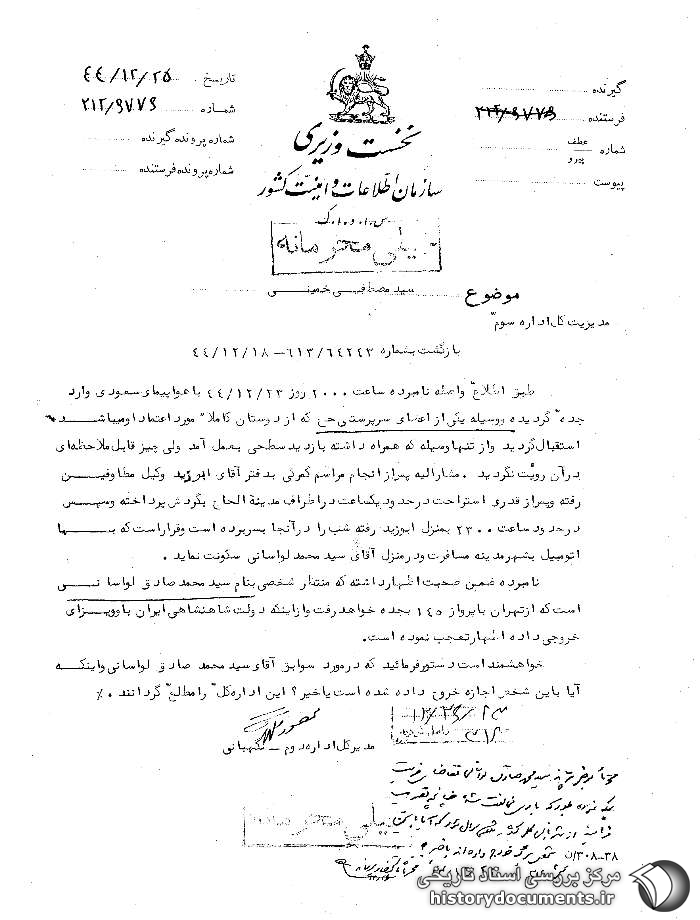 تاریخ ۴۴/۱۲/۲۵
شماره ۲۱۲/۹۷۷۹
شماره پرونده گیرنده
شماره پرونده فرستنده
نخست وزیری
سازمان اطلاعات و امنیت کشور
گیرنده
فرستنده ۲۱۲/۹۷۷۹
شماره عطف
پیرو
پیوست
خیلی محرمانه
موضوع سید مصطفی خمینی
مدیریت کل اداره سوم
بازگشت بشماره ۶۱۳/۶۴۲۴۳-۴۴/۱۲/۱۸
طبق اطلاع واصله نامبرده ساعت ۲۰۰۰ روز ۴۴/۱۲/۲۳ با هواپیمای سعودی وارد
جده گردیده و وسیله یکی از اعضای سرپرستی حج که از دوستان کاملا" مورد اعتماد او میباشد
استقبال گردید و از تنها وسیله که همراه داشته بازدید سطحی بعمل آمد ولی چیز قابل ملاحظه‌ای
در آن رویت نگردید . مشارالیه پس از انجام مراسم گمرکی بدفتر آقای ابوزید وکیل مطاوفین
رفته و پس از قدری استراحت در حدود یکساعت در اطراف مدینة الحاج بگردش پرداخته و سپس
در حدود ساعت ۲۳۰۰ بمنزل ابوزید رفته شب را در آنجا بسر برده است و قرار است که بـــا
اتومبیل بشهر مدینه مسافرت و در منزل آقای سید محمد لواسانی سکونت نماید .
نامبرده ضمن صحبت اظهار داشته که منتظر شخصی بنام سید محمد صادق لواسانـــی
است که از تهران با پرواز ۱۴۵ بجده خواهد رفت و از اینکه دولت شاهنشاهی ایران باو ویـــزای
خروجی داده اظهار تعجب نموده است.
خواهشمند است دستور فرمائید که در مورد سوابق آقای سید محمد صادق لواسانی و اینکـه
آیا باین شخص اجازه خروج داده شده است یا خیر؟ این اداره کل را مطلع گردانند . ٪
مدیر کل اداره دوم - نگهبانی
خیلی محرمانه
۳۰۸-۳۸
مرکز بررسی اسناد تاریخی
historydocuments.ir